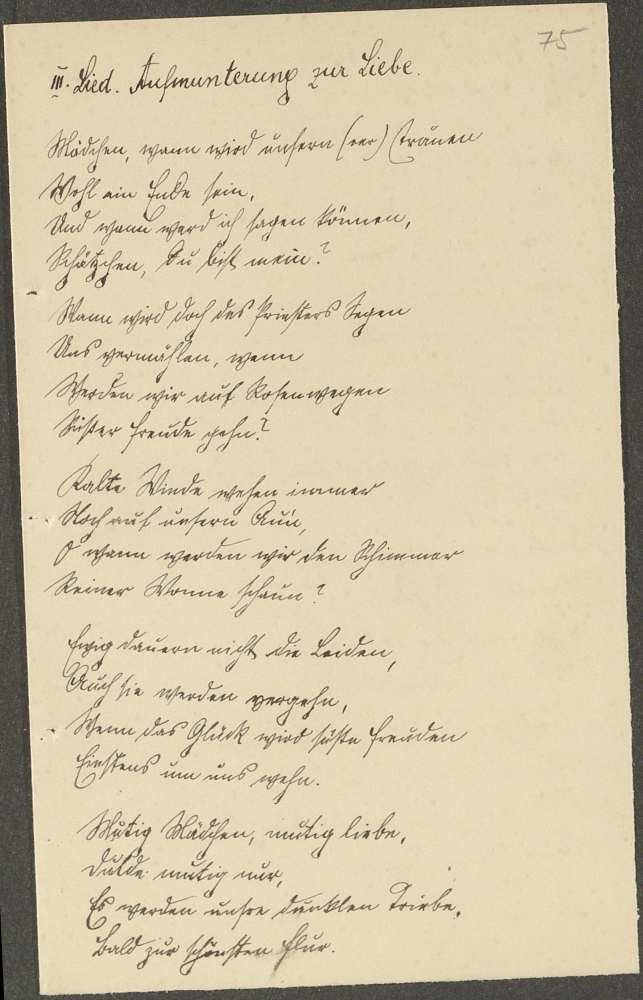 75
III. Lied. Aufmunterung zur Liebe.
Mädchen, wann wird unsern (ver) Tränen
Wohl ein Ende sein,
Und wann werd ich sagen können,
Schätzchen, Du bist mein?
Wann wird doch des Priesters Segen
Uns vermählen, wann
Werden wir auf Rosenwegen
Süßer Freude gehn?
Kalte Winde wehen immer
Noch auf unsern Au'n,
O wann werden wir den Schimmer
Reiner Wonne schaun?
Ewig dauern nicht die Leiden,
Auch sie werden vergehn,
Wenn das Glück wird süße Freuden
Einstens um uns wehn.
Mutig Mädchen, mutig liebe,
Dulde mutig nur,
Es werden unsre dunklen Triebe,
Bald zur schönsten Flur.